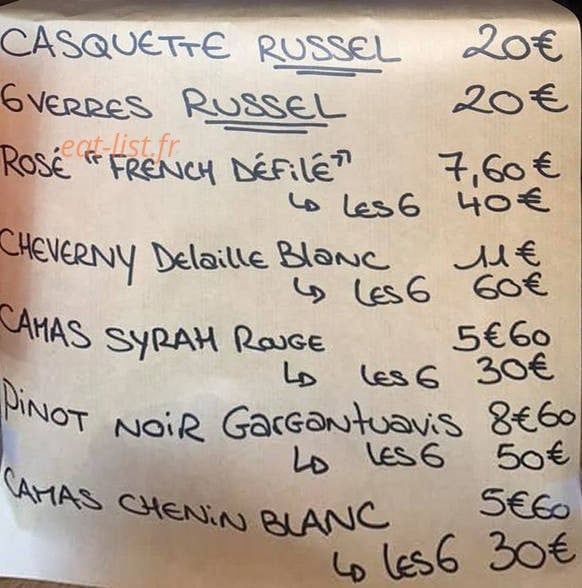 CASQUETTE RUSSEL 20€
6 VERRES RUSSEL 20€
eat-list.fr
ROSÉ "FRENCH DÉFILÉ" 7,60€
↳ LES 6 40€
CHEVERNY Delaille Blanc 11€
↳ LES 6 60€
CAMAS SYRAH ROUGE 5€60
↳ LES 6 30€
PINOT NOIR GARGANTUAVIS 8€60
↳ LES 6 50€
CAMAS CHENIN BLANC 5€60
↳ LES 6 30€